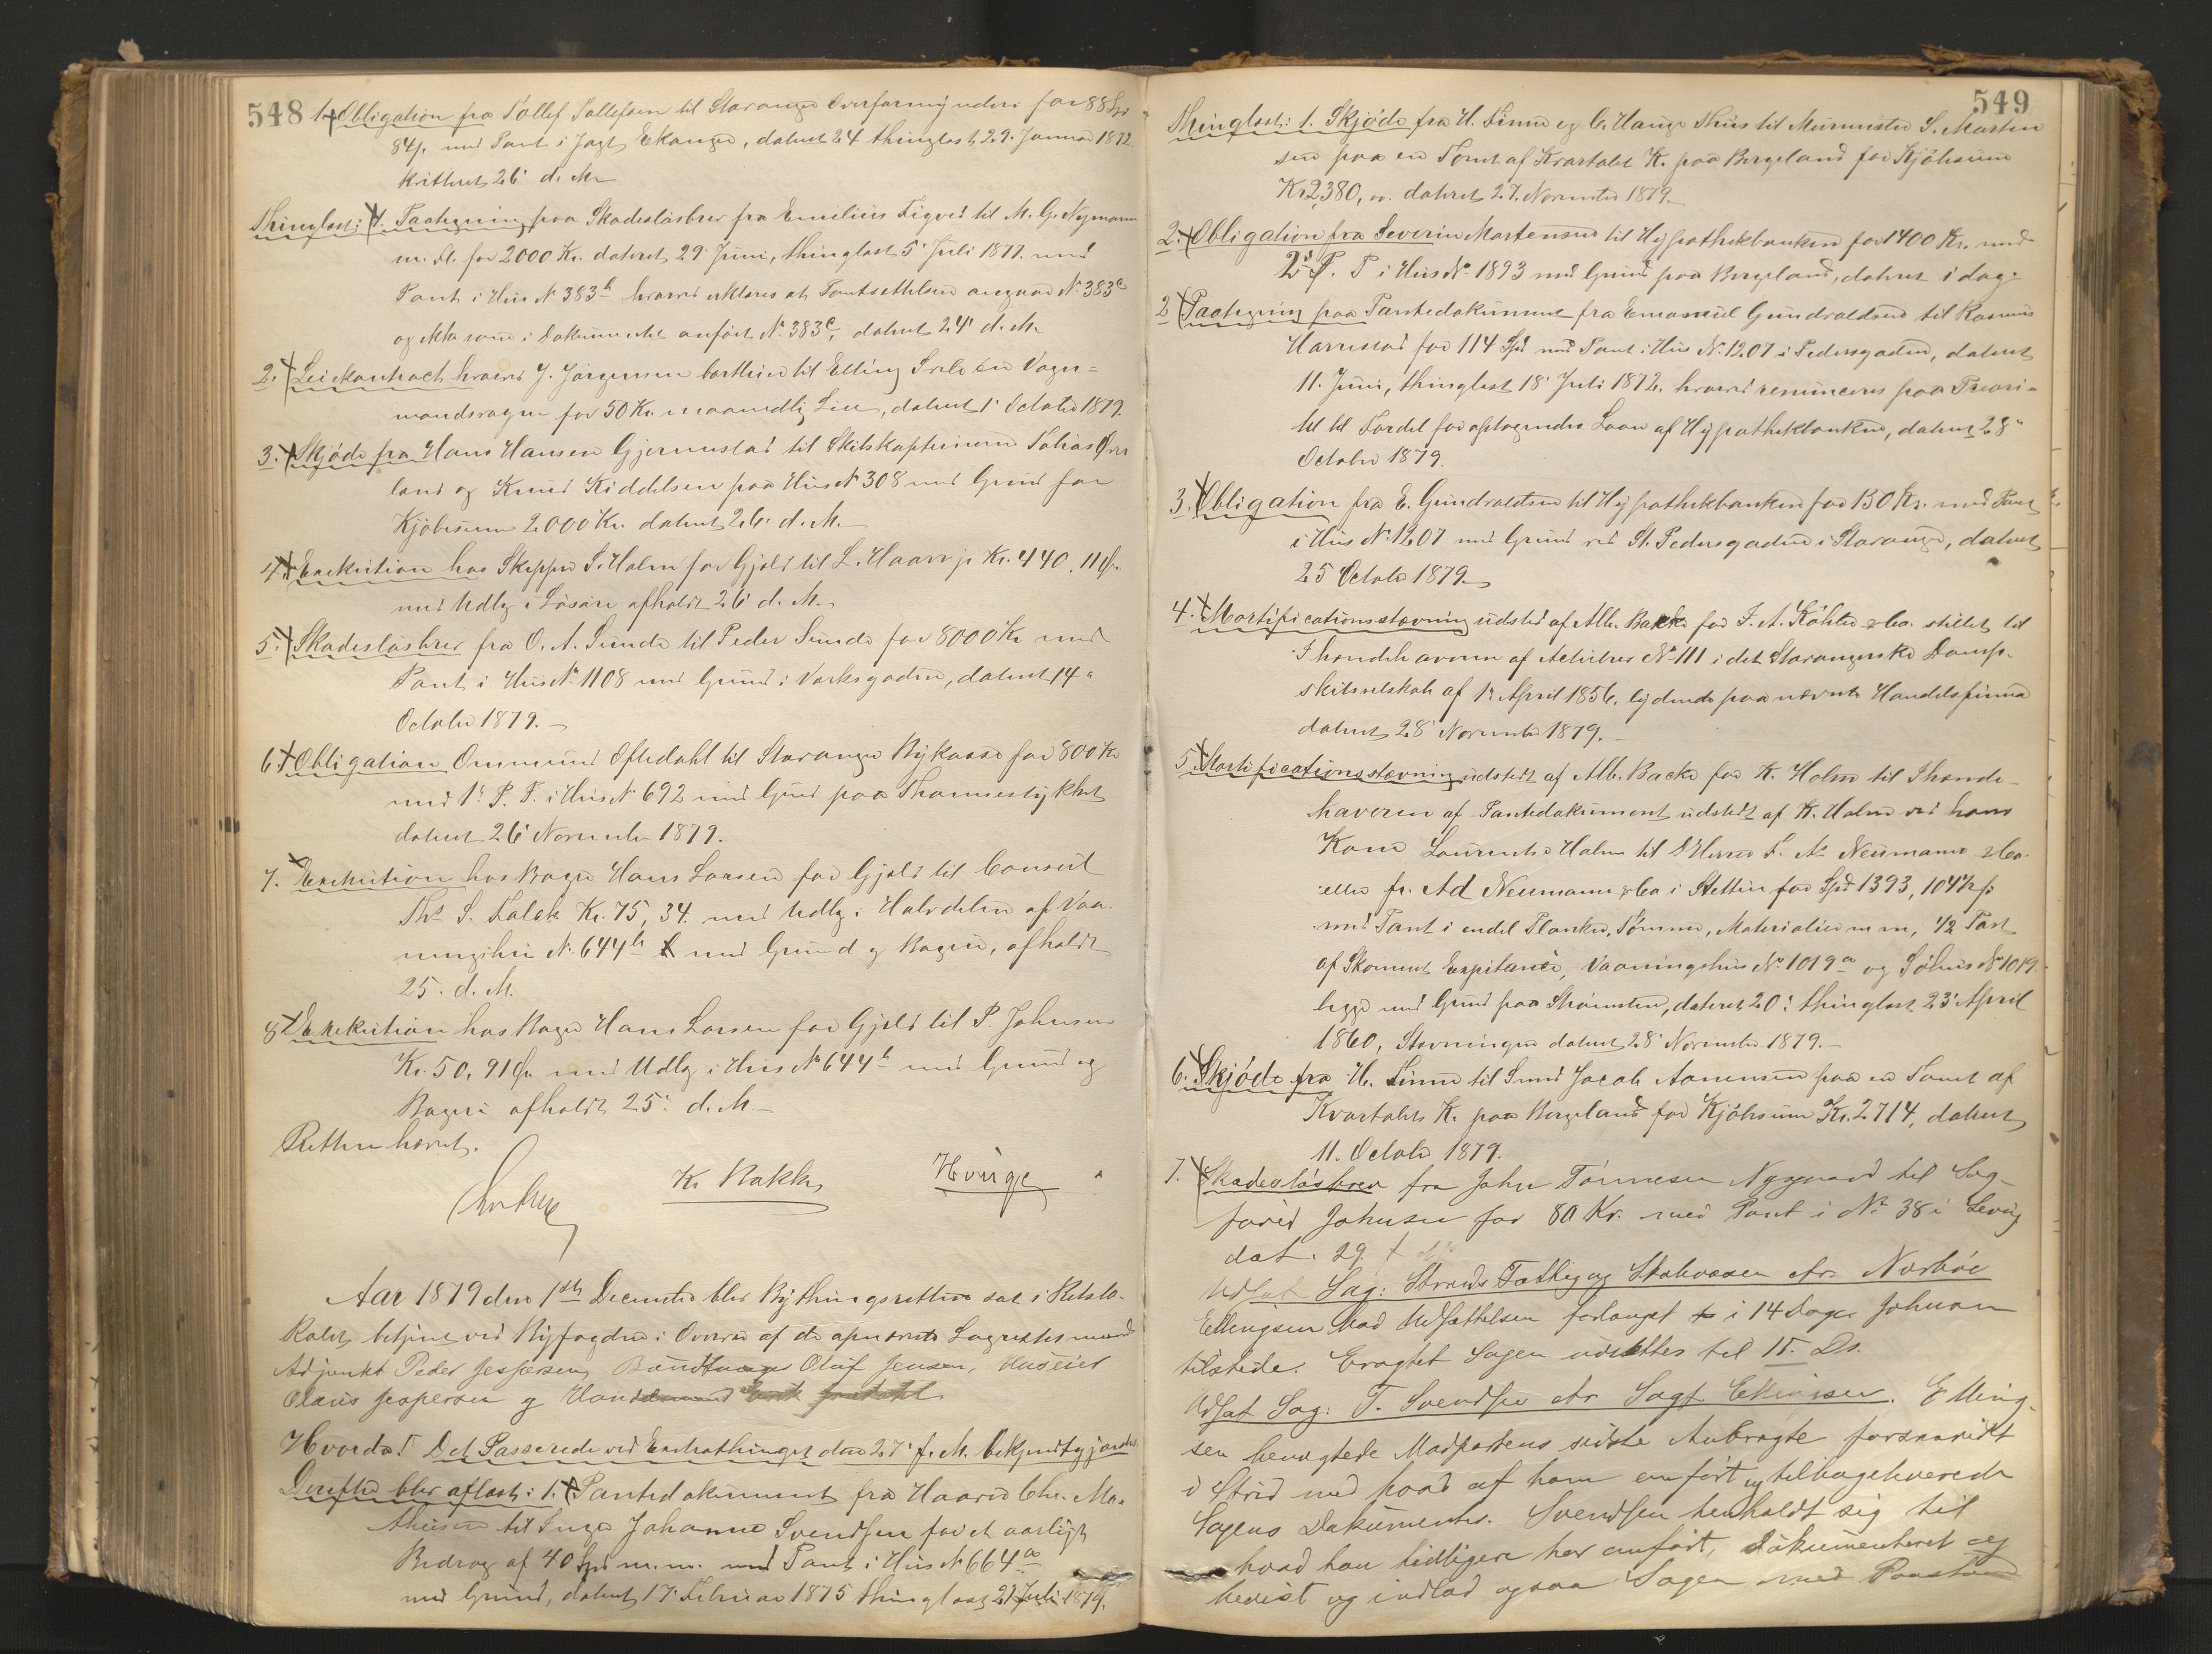 548
1. Obligation fra Tollef Tollefsen til Stavanger Overformynderi for 88 Spd
84 s. med Pant i Jagt Ekanger, dateret 24 thinglæst 29. Januar 1872.
kvitteret 26' d. M.
Thinglæst: 1. Paategning paa Skadesløsbrev fra Emilius Sigved til M. G. Nymann
m. fl. for 2000 Kr. dateret 29' Juni, thinglæst 5' Juli 1877. med
Pant i Hus N 383 b hvorved erklæres at Pantsettelsen angaar N. 383 c
og ikke som i Dokumentet anført N. 383 c, dateret 24' d. M.
2. Leiekontract hvorved J. Jørgensen bortleier til Elling en Vogn-
mandsvogn for 50 Kr. maanedlig Leie, dateret 1' October 1879.
3. Skjøde fra Hans Hansen Gjermestad til Skibskapteinerne Tobias Øver
land og Knud Kiddelsen paa Hus N 308 med Grund for
Kjøbesum 2000 Kr. dateret 26. d. M.
4. Exekution hos Skipper S. Holm for Gjæld til L. Haaver jr Kr. 440. 11 Ør.
med Udlæg i Løsøre afholdt 26' d. M.
5. Skadesløsbrev fra O. A. Sunde til Peder Sunde for 8000 Kr med
Pant i Hus N. 1108 med Grund i Værksgaden, dateret 14 "
October 1879.
6. Obligation Ommund Oftedahl til Stavanger Bykasse for 800 Kr
med 1' P. P. i Hus N 692 med Grund paa Thomsestykket
dateret 26' November 1879.
7. Exekution hos Bager Hans Larsen for Gjæld til Consul
Th. S. Falck Kr. 75, 34. med Udlæg i Halvdelen af Vaa-
ningshus N. 644 b med Grund og Bageri, afholdt
25. d. M.
8. Exekution hos Bager Hans Larsen for Gjæld til P. Johnsen
Kr. 50, 91 Ør med Udlæg i Hus N 644 b med Grund og
Bageri afholdt 25' d. M.
Retten hævet.
K. Bakke Hauge
Aar 1879 den 1ste December blev Bythingsretten sat i Retslo-
kalet betjent ved Byfogden i Overvær af de opnævnte Lagrettesmænd
Adjunkt Peder Jespersen, Olaf Jensen, Huseier
Olaus Jespersen og
Hvorda! Det Passerede ved Extrathinget den 27' f. M. bekjendtgjordes
Derefter blev aflæst: 1. Pantedokument fra Haaver Chr. Ma-
thiesen til Inger Johanne Svendsen for et aarligt
Bidrag af 40 Spd m. m. med Pant i Hus N 664 a
med Grund, dateret 17' Februar 1875 thinglæst 21 Juli 1879.
549
Thinglæst: 1. Skjøde fra H. Finne og C. Hauge Thiis til Murmester S. Marten
sen paa en Tomt af Kvartalet K. paa Bergeland for Kjøbesum
Kr 2,380, 00. dateret 27. November 1879.
2. Obligation fra Severin Martensen til Hypothekbanken for 1400 Kr. med
2' P. P i Hus N. 1893 med Grund paa Bergeland, dateret i dag.
2 Paategning paa Pantedokument fra Emanuel Gundvaldsen til Rasmus
Harrestad for 114 Spd med Pant i Hus N. 1207 i Pedersgaden, dateret
11. Juni, thinglæst 18' Juli 1872. hvorved renunceres paa Priori-
tet til Fordel for optagendes Laan af Hypothekbanken, dateret 28 "
October 1879.
3. Obligation fra E. Gundvaldsen til Hypothekbanken for 130 Kr. med Pant
i Hus N. 1207 med Grund ved St. Pedersgaden i Stavanger, dateret
25 October 1879.
4. Mortificationsstævning udstedt af Alb. Backe for F. A. Köhler & Co. stillet til
Ihændehaveren af Actiebrev N. 111 i det Stavangerske Damp-
skibsselskab af 1' April 1856, lydende paa nævnte Handelsfirma
dateret 28' November 1879.
5. Mortificationsstævning udstedt af Alb. Backe for K. Holm til Ihænde-
haveren af Pantedokument udstedt af K. Holm ved hans
Kone Laurentse Holm til D'Herrer F. A. Neumann & Co.
eller fr. Ad Neumann & Co i Stettin for Spd 1393, 104 1/2 s:
med Pant i endel Planker, Tømmer, Materialier m m, 1/2 Part
af Skonnert Expitancè, Vaaningshus N. 1019 a og Søhus N 1019.
begge med Grund paa Strømsten, dateret 20' thinglæst 23' April
1860, Stævningen dateret 28' November 1879.
6. Skjøde fra H. Finne til Smed Jacob Aanensen paa en Tomt af
Kvartalet K. paa Bergeland for Kjøbesum Kr. 2714, dateret
11. October 1879.
7. Skadesløsbrev fra John Tønnesen Nygaard til Sag-
fører Johnsen for 80 Kr. med Pant i N. 38 i Levig
dat. 29. f M.
Udsat Sag: Strands Fattig og Skolevæsen ctr. Norbøe
Ellingsen Mod Udsættelsen forlangt i 14 Dage Johnsen
tilstede. Eragtet Sagen udsættes til 15. Ds.
Udsat Sag: T. Svendsen ctr Sagf Ellingsen. Elling-
sen benægtede Modpartens sidste Anbragte forsaavidt
i Strid med hvad af ham anført og tilbageleverede
Sagens Dokumenter. Svendsen henholdt sig til
hvad han tidligere har anført, dokumenteret og
bedist og indlod ogsaa Sagen med Paastand